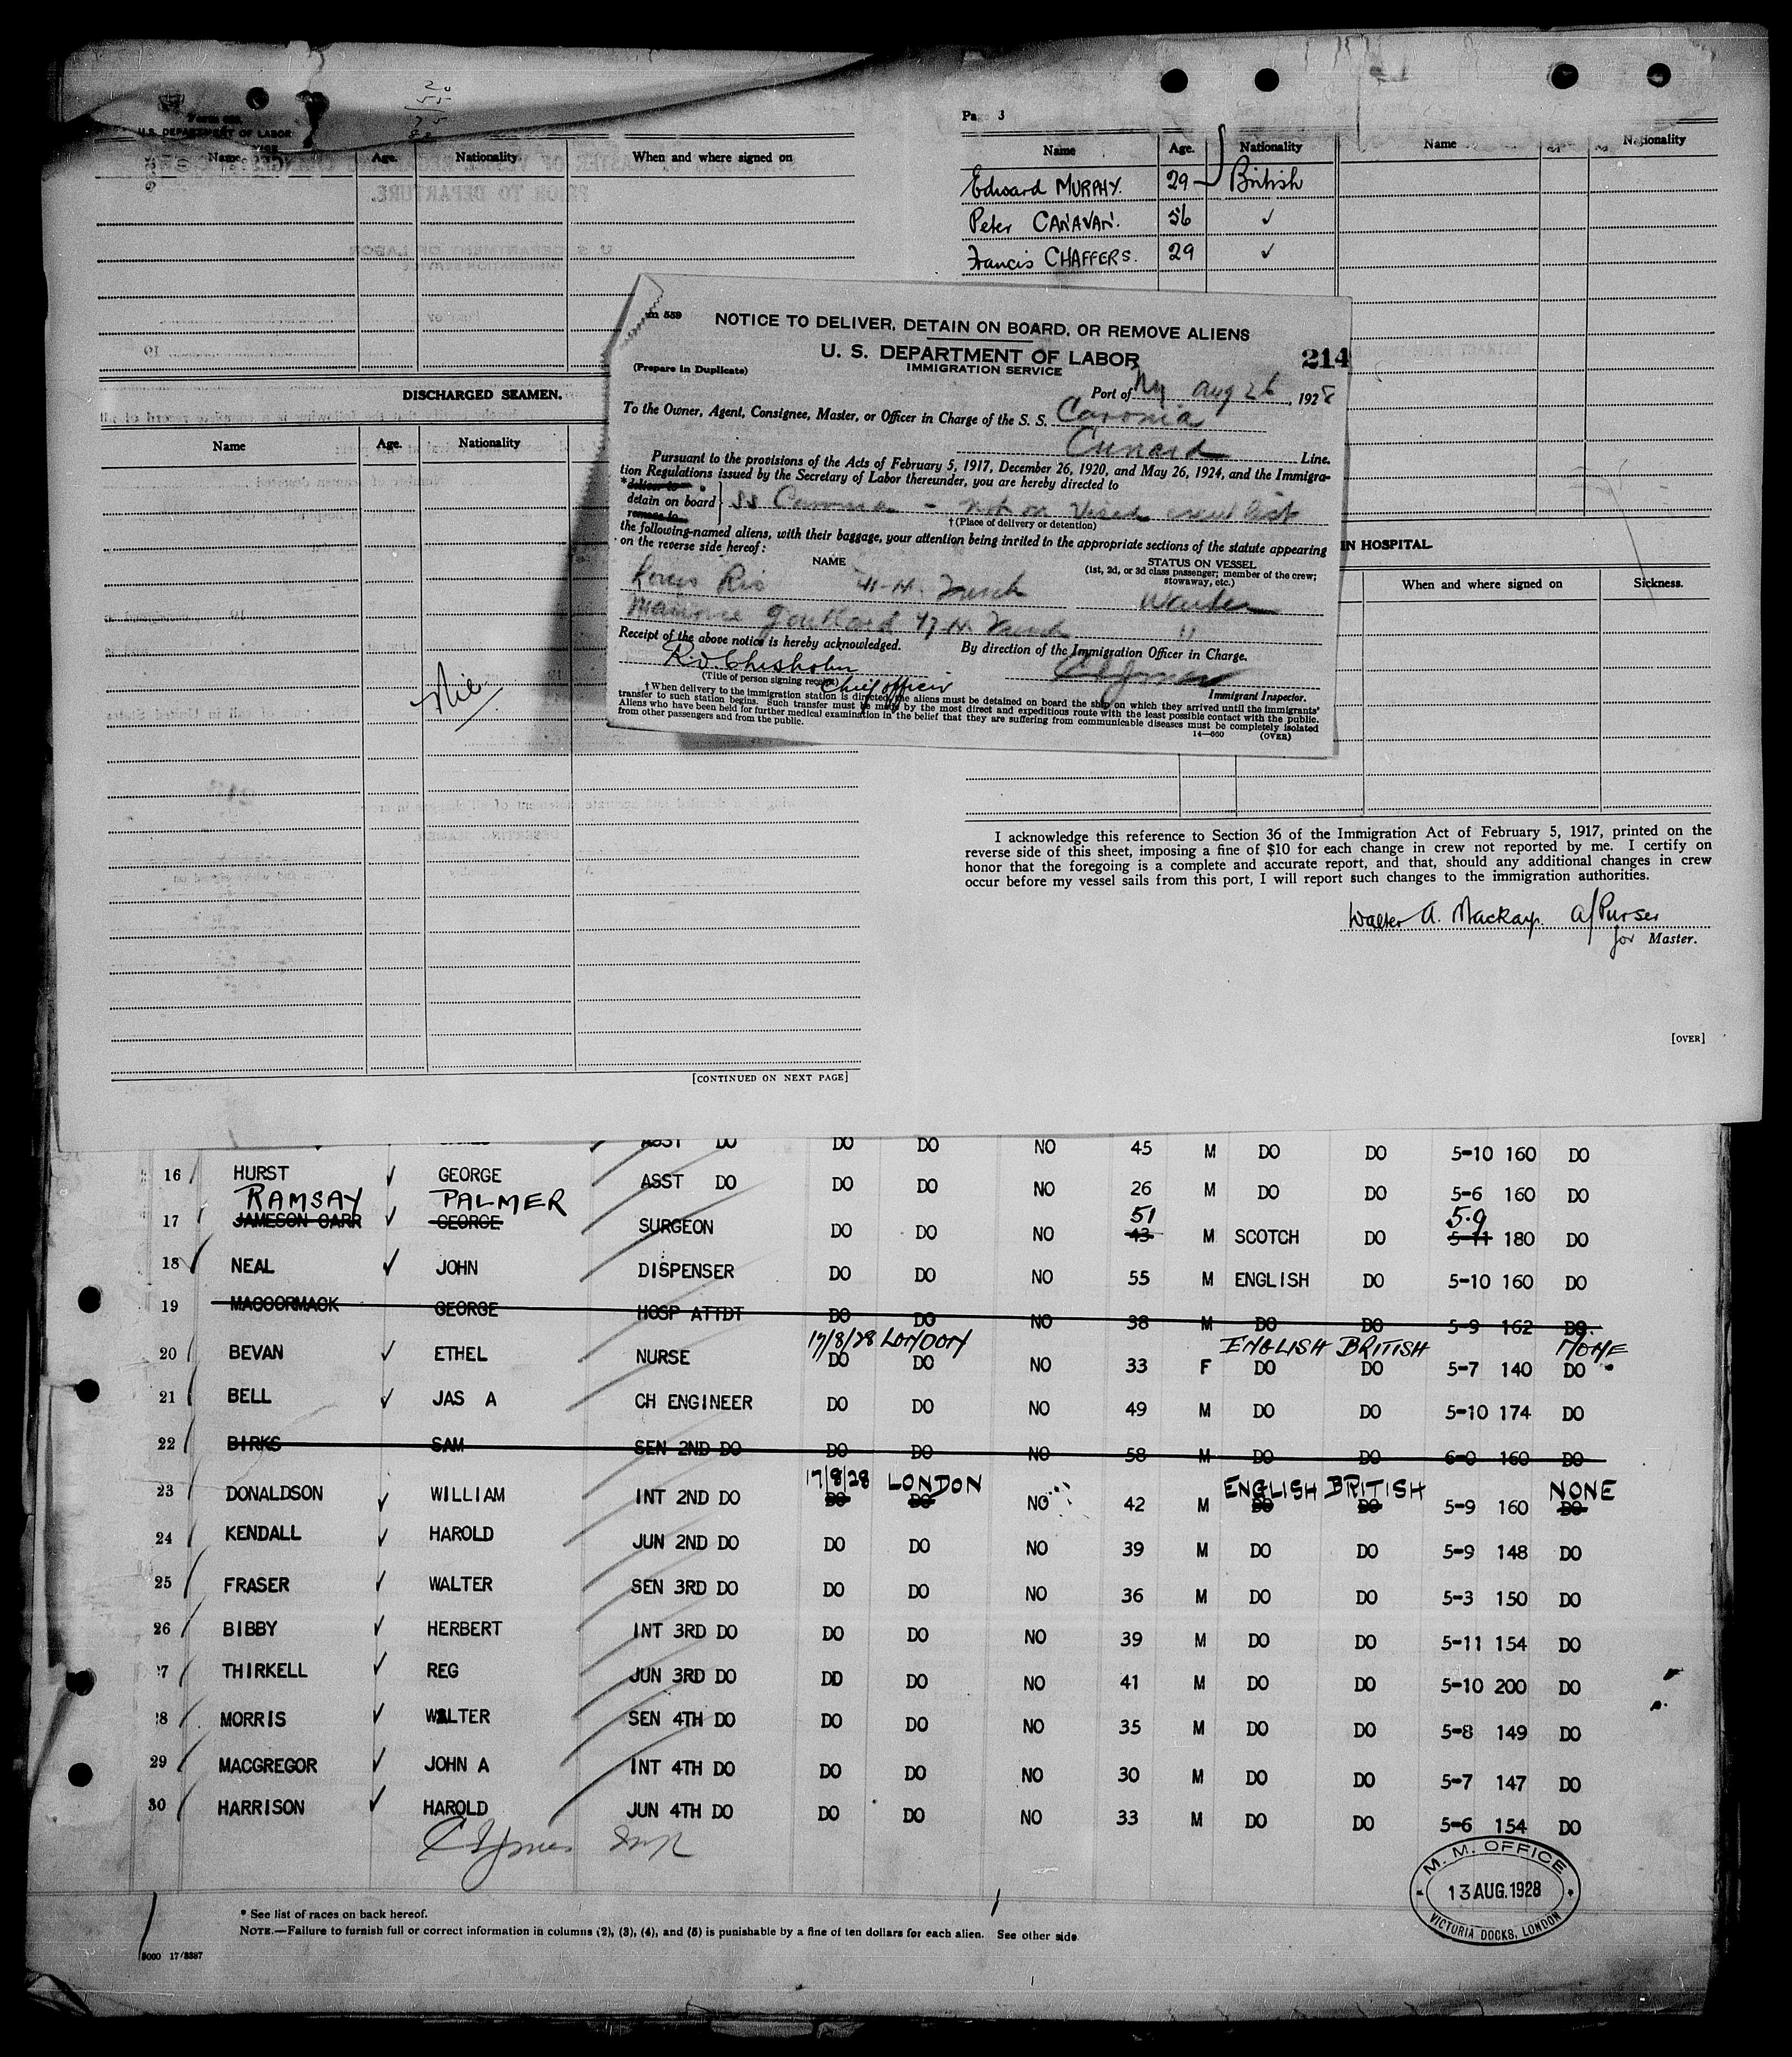 Form 680
U. S. DEPARTMENT OF LABOR
Name Age. Nationality When and where signed on
DISCHARGED SEAMEN.
Name Age. Nationality
Nil
[CONTINUED ON NEXT PAGE]
Page 3
Name Age. Nationality Name Nationality
Edward MURPHY. 29 British
Peter CANAVAN. 56 ✓
Francis CHAFFERS. 29 ✓
559
NOTICE TO DELIVER, DETAIN ON BOARD, OR REMOVE ALIENS
U. S. DEPARTMENT OF LABOR
IMMIGRATION SERVICE
214
(Prepare in Duplicate)
Port of NY Aug 26, 1928
To the Owner, Agent, Consignee, Master, or Officer in Charge of the S. S. Caronia
Cunard Line.
Pursuant to the provisions of the Acts of February 5, 1917, December 26, 1920, and May 26, 1924, and the Immigra-
tion Regulations issued by the Secretary of Labor thereunder, you are hereby directed to
*deliver to
detain on board } SS Caronia - not on Vised crew list
remove to
†(Place of delivery or detention)
the following-named aliens, with their baggage, your attention being invited to the appropriate sections of the statute appearing
on the reverse side hereof:
NAME STATUS ON VESSEL
(1st, 2d, or 3d class passenger; member of the crew;
stowaway, etc.)
Louis Rio 41-M. French Waiter
Maurice 47-M. French "
Receipt of the above notice is hereby acknowledged. By direction of the Immigration Officer in Charge.
R.D. Chisholm
(Title of person signing receipt) Chief officer
Immigrant Inspector.
†When delivery to the immigration station is directed, the aliens must be detained on board the ship on which they arrived until the immigrants'
transfer to such station begins. Such transfer must be made by the most direct and expeditious route with the least possible contact with the public.
Aliens who have been held for further medical examination in the belief that they are suffering from communicable diseases must be completely isolated
from other passengers and from the public.
14—660 (OVER)
IN HOSPITAL.
When and where signed on Sickness.
I acknowledge this reference to Section 36 of the Immigration Act of February 5, 1917, printed on the
reverse side of this sheet, imposing a fine of $10 for each change in crew not reported by me. I certify on
honor that the foregoing is a complete and accurate report, and that, should any additional changes in crew
occur before my vessel sails from this port, I will report such changes to the immigration authorities.
Walter A. Mackay. A/Purser
for Master.
[OVER]
ASST DO DO DO NO 45 M DO DO 5-10 160 DO
16 HURST ✓ GEORGE ASST DO DO DO NO 26 M DO DO 5-6 160 DO
RAMSAY PALMER 51 5.9
17 JAMESON CARR ✓ GEORGE SURGEON DO DO NO 43 M SCOTCH DO 5-11 180 DO
18 NEAL ✓ JOHN DISPENSER DO DO NO 55 M ENGLISH DO 5-10 160 DO
19 MACCORMACK GEORGE HOSP ATTDT DO DO NO 38 M DO DO 5-9 162 DO
17/8/28 LONDON ENGLISH BRITISH NONE
20 BEVAN ✓ ETHEL NURSE DO DO NO 33 F DO DO 5-7 140 DO
21 BELL ✓ JAS A CH ENGINEER DO DO NO 49 M DO DO 5-10 174 DO
22 BIRKS SAM SEN 2ND DO DO DO NO 58 M DO DO 6-0 160 DO
17/8/28 LONDON ENGLISH BRITISH NONE
23 DONALDSON ✓ WILLIAM INT 2ND DO DO DO NO 42 M DO DO 5-9 160 DO
24 KENDALL ✓ HAROLD JUN 2ND DO DO DO NO 39 M DO DO 5-9 148 DO
25 FRASER ✓ WALTER SEN 3RD DO DO DO NO 36 M DO DO 5-3 150 DO
26 BIBBY ✓ HERBERT INT 3RD DO DO DO NO 39 M DO DO 5-11 154 DO
27 THIRKELL ✓ REG JUN 3RD DO DD DO NO 41 M DO DO 5-10 200 DO
28 MORRIS ✓ WALTER SEN 4TH DO DO DO NO 35 M DO DO 5-8 149 DO
29 MACGREGOR ✓ JOHN A INT 4TH DO DO DO NO 30 M DO DO 5-7 147 DO
30 HARRISON ✓ HAROLD JUN 4TH DO DO DO NO 33 M DO DO 5-6 154 DO
M. M. OFFICE
13 AUG. 1928
VICTORIA DOCKS, LONDON
* See list of races on back hereof.
NOTE.—Failure to furnish full or correct information in columns (2), (3), (4), and (5) is punishable by a fine of ten dollars for each alien. See other side.
5000 17/8387